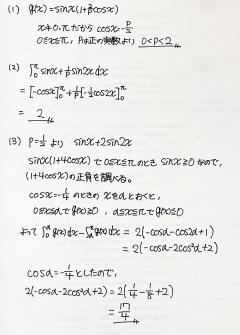 (1) g(x) = sinx(1+2/p cosx)
x≠0,πだから cosx=-p/2
0≤x≤π, Pは正の実数より 0<P<2
(2) ∫₀^π sinx+1/p sin2x dx
=[-cosx]₀^π+1/p[-1/2cos2x]₀^π
= 2
(3) P=1/2より sinx+2sin2x
sinx(1+4cosx)で0≤x≤πのときsinx≥0なので,
(1+4cosx)の正負を調べる。
cosx=-1/4のときのxをαとおくと,
0≤x≤αでg(x)≥0, α≤x≤πでg(x)≤0
よって∫₀^α g(x)dx-∫_α^π g(x)dx = 2(-cosα-cos2α+1)
= 2(-cosα-2cos²α+2)
cosα=-1/4としたので,
2(-cosα-2cos²α+2)=2(1/4-1/8+2)
= 17/4